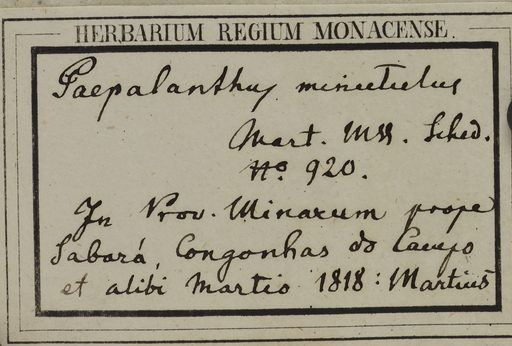 HERBARIUM REGIUM MONACENSE.
Paepalanthus minutulus
Mart. Mss. Sched.
No. 920.
In Prov. Minarum prope
Sabará, Congonhas do Campo
et alibi Martio 1818: Martius